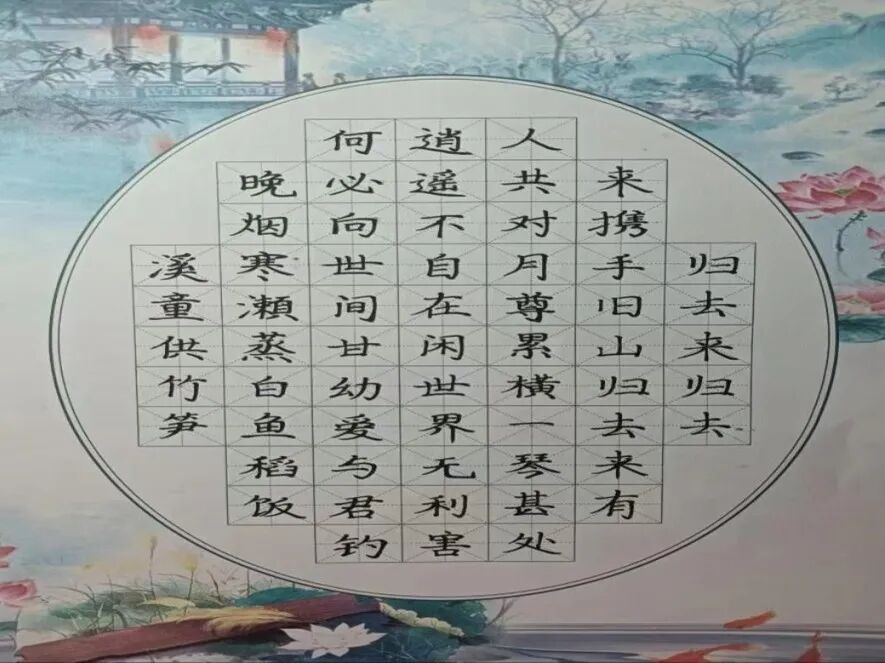 归去来归去
来携手旧山归去来有
人共对月尊累横一琴甚处
逍遥不自在闲世界无利害
何必向世间甘幼爱与君钓
晚烟寒瀬蒸白鱼稻饭
溪童供竹笋